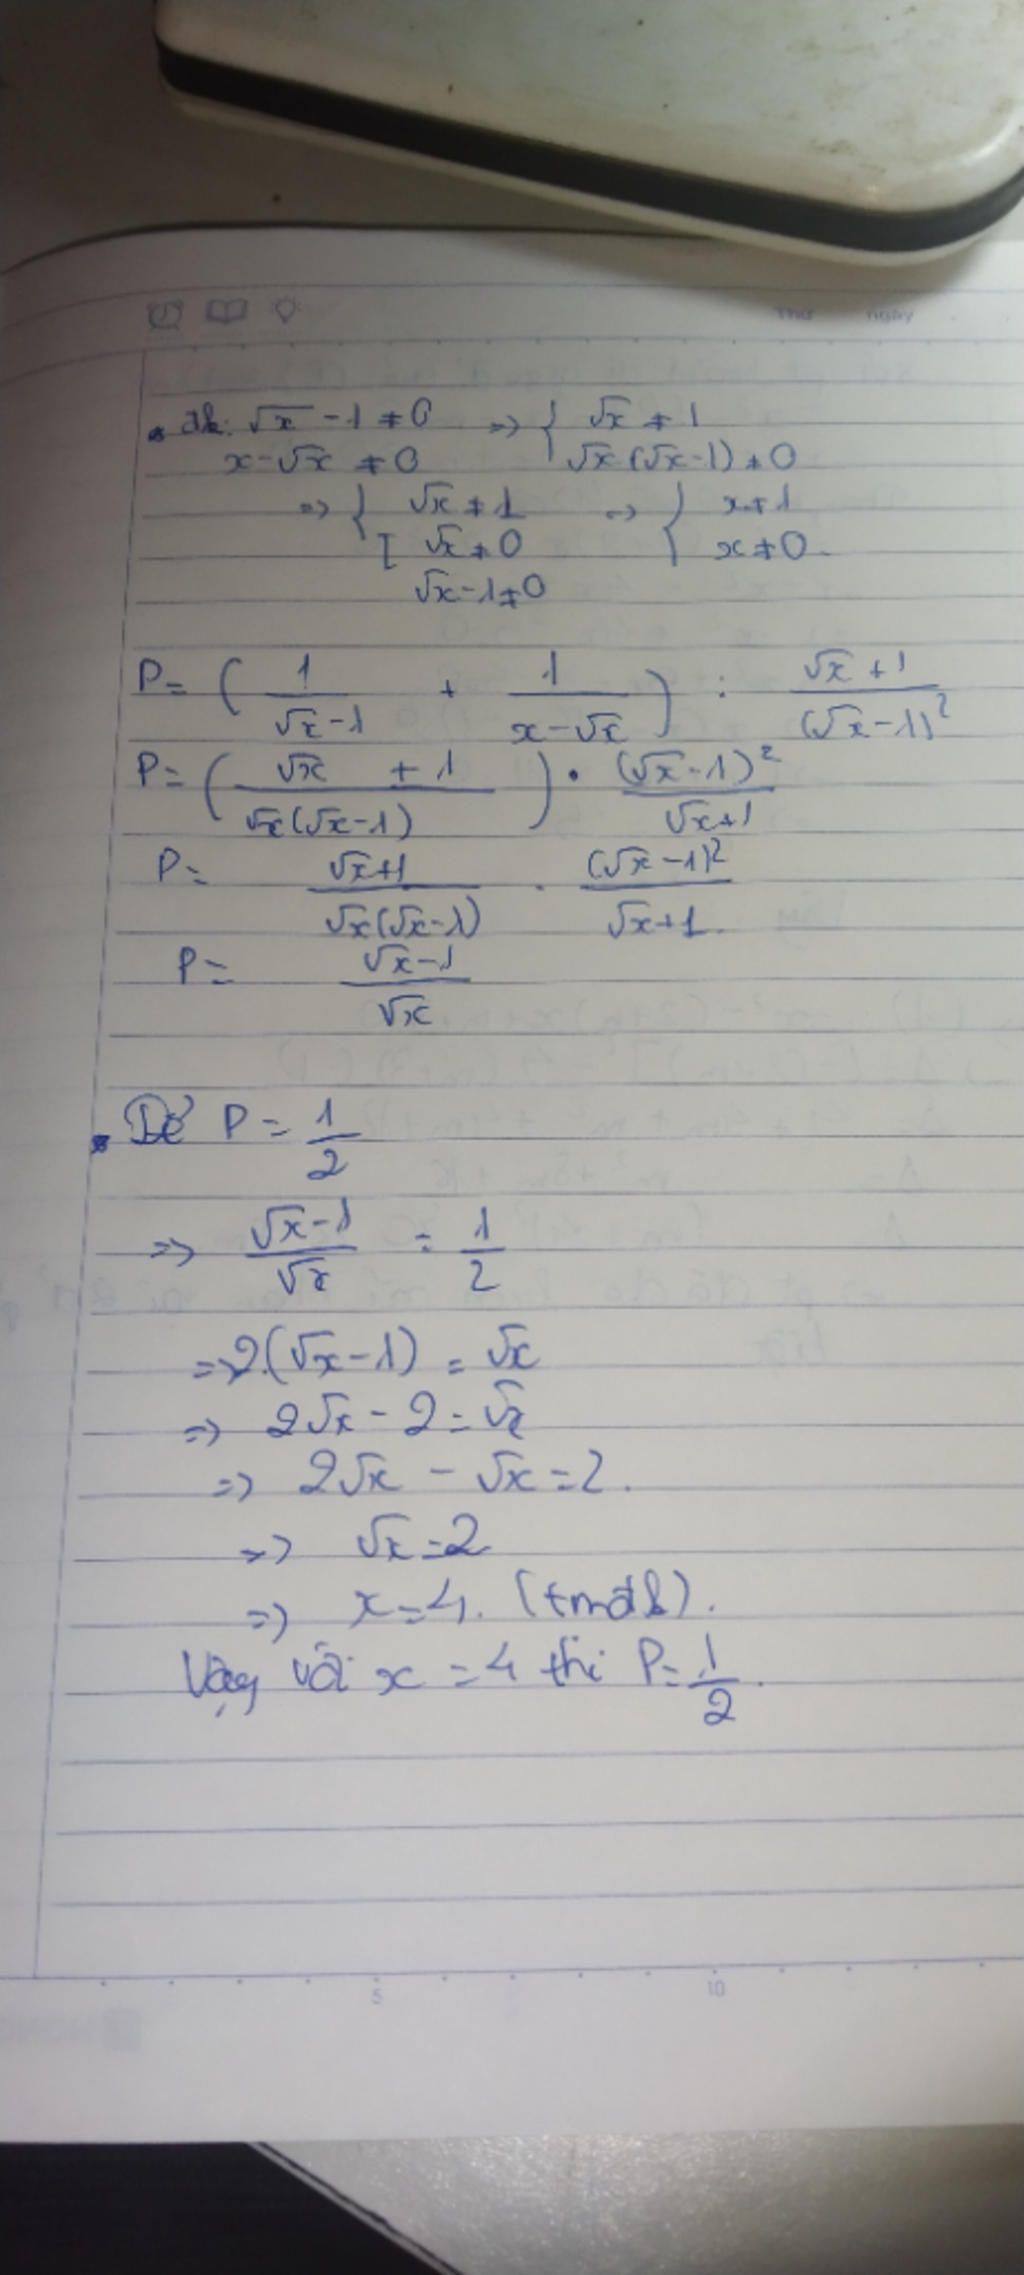 Thứ ngày
đk: √x - 1 ≠ 0 => { √x ≠ 1
x - √x ≠ 0 √x(√x-1) ≠ 0
=> { √x ≠ 1 => { x ≠ 1
[ √x ≠ 0 x ≠ 0.
√x - 1 ≠ 0
P = ( 1/(√x - 1) + 1/(x - √x) ) : (√x + 1)/(√x - 1)²
P = ( (√x + 1)/(√x(√x - 1)) ) . (√x - 1)²/(√x + 1)
P = (√x+1)/(√x(√x-1)) . (√x - 1)²/(√x+1).
P = (√x - 1)/√x
Để P = 1/2
=> (√x - 1)/√x = 1/2
=> 2.(√x - 1) = √x
=> 2√x - 2 = √x
=> 2√x - √x = 2.
=> √x = 2
=> x = 4. (tmđk).
Vậy với x = 4 thì P = 1/2.
5 10